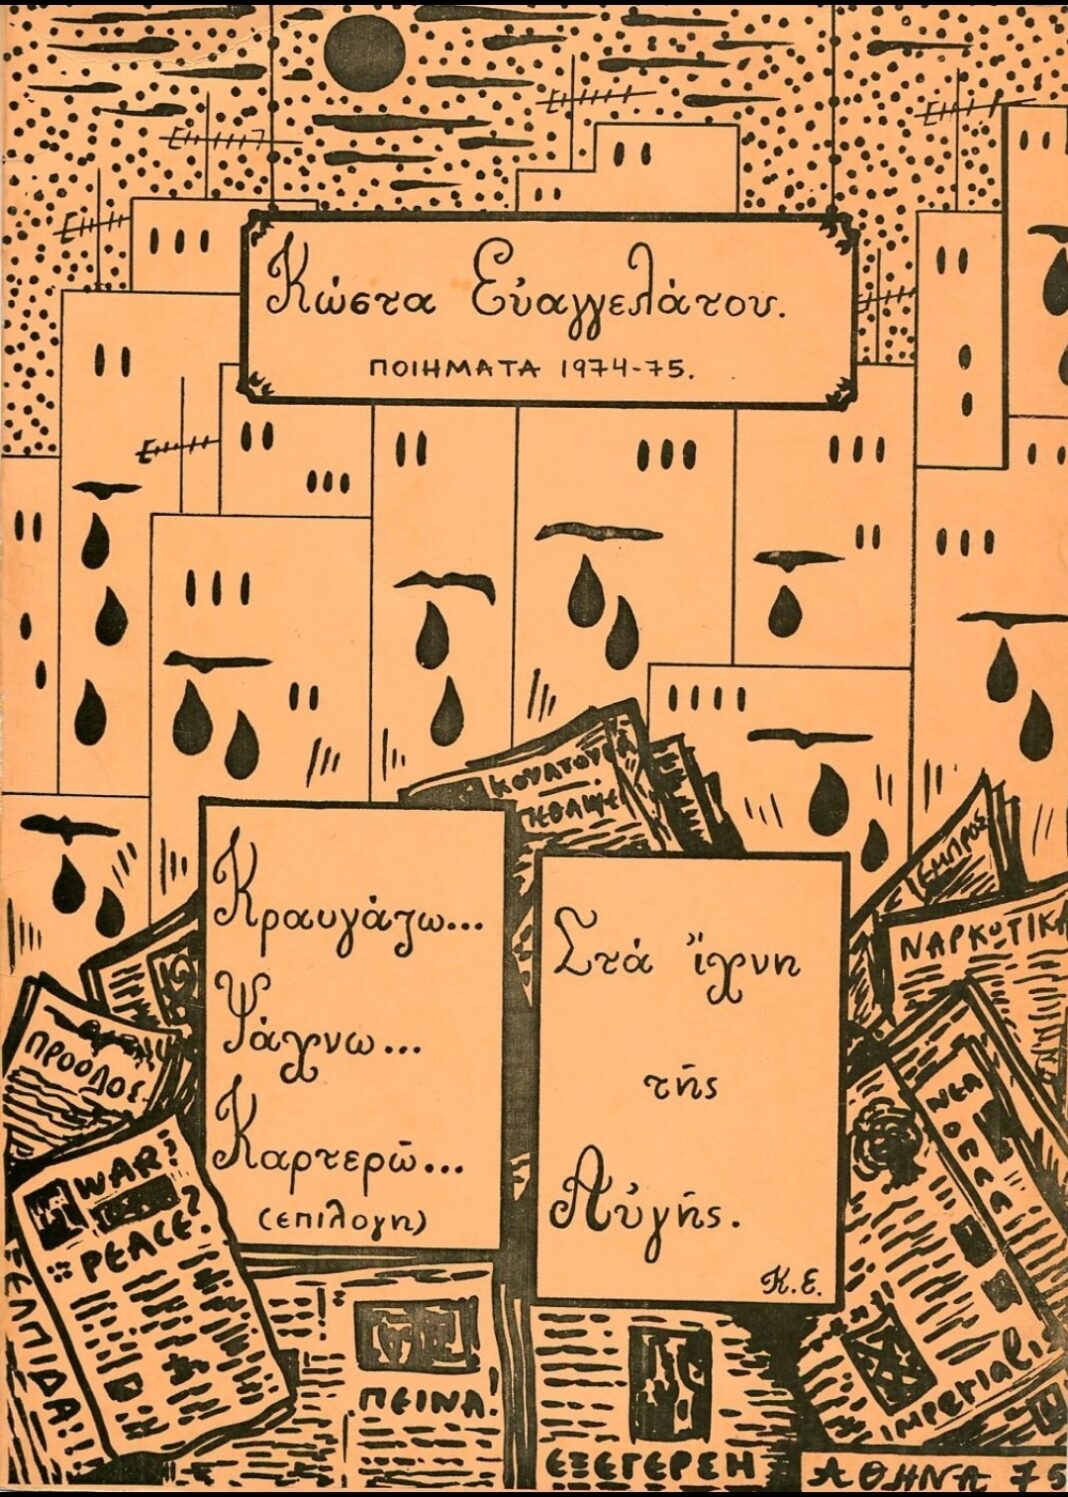 Κώστα Εὐαγγελάτου.
ΠΟΙΗΜΑΤΑ 1974-75.
Κραυγάζω...
Ψάχνω...
Καρτερῶ...
(επιλογη)
Στά ἴχνη
τῆς
Αὐγῆς.
Κ.Ε.
ΕΜΠΡΟΣ
ΝΑΡΚΩΤΙΚΑ
ΠΡΟΟΔΟΣ
WAR?
PEACE?
ΕΛΠΙΔΑ!!
ΠΕΙΝΑ!
ΕΞΕΓΕΡΣΗ
ΝΕΑ
IMPERIALIS
ΑΘΗΝΑ 75